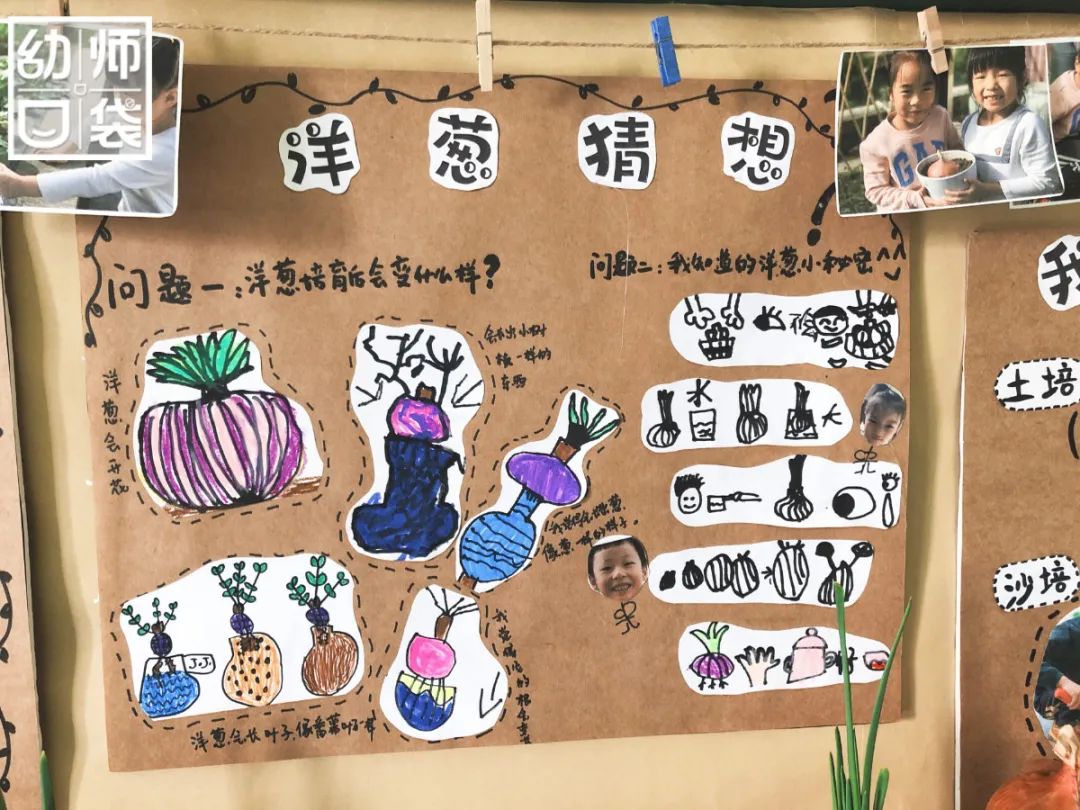 幼师口袋
洋葱猜想
问题一:洋葱培育后会变什么样?
问题二:我知道的洋葱小秘密^^
洋葱会开花
会长出小树
枝一样的
东西
我觉得会
像葱一样的样子。
水
大
J.J.
洋葱会长叶子,像番薯叶一样
GAP
我
土培
沙培